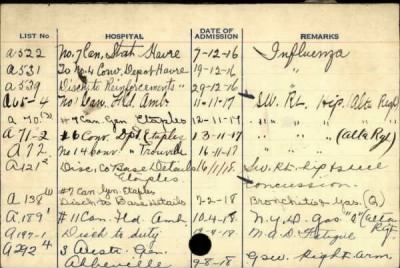 LIST NO HOSPITAL DATE OF ADMISSION REMARKS
A522 No. 7 Can. Stat. Havre 7-12-16 Influenza
A531 To No 4 Conv. Depot Havre 19-12-16 "
A539 Disch to Reinforcements " 29-12-16 "
A65-4 No 1 Can. Fld. Amb. 11-11-17 S.W. Rt. Hip. (Alta Reg)
A70 #7 Can. Gen Etaples 12-11-17 " " "
A71-2 #6 Conv. Dpt Etaples 13-11-17 " " " (Alta Rgt)
A72 No 14 Conv. " Trouville 16-11-17 " " "
A121 Disc, to Base Details 16/1/18. S.w. Rt. hip &
Etaples. Concussion.
#7 Can. Gen. Etaples
A138 Disch to Base Details 7-2-18 Bronchitis
A189 #11 Can. Fld. Amb. 10.4.18 N.Y.D. Gas "O" (Alta
A197-1 Disch to duty -4-18 Rgt.
A292 3 Austr. Gen. Gsw. Right Arm
Abbeville 9-8-18